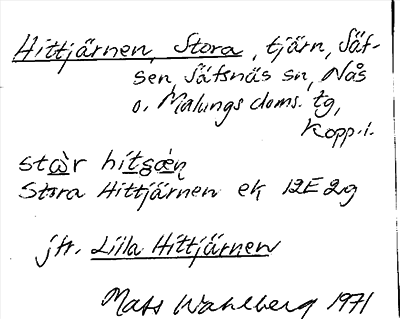 Hittjärnen, Stora, tjärn, Säf-
sen, Säfsnäs sn, Nås
o. Malungs doms. tg,
Kopp. l.
Stora Hittjärnen ek 12E 2g
jfr. Lilla Hittjärnen
Mats Wahlberg 1971